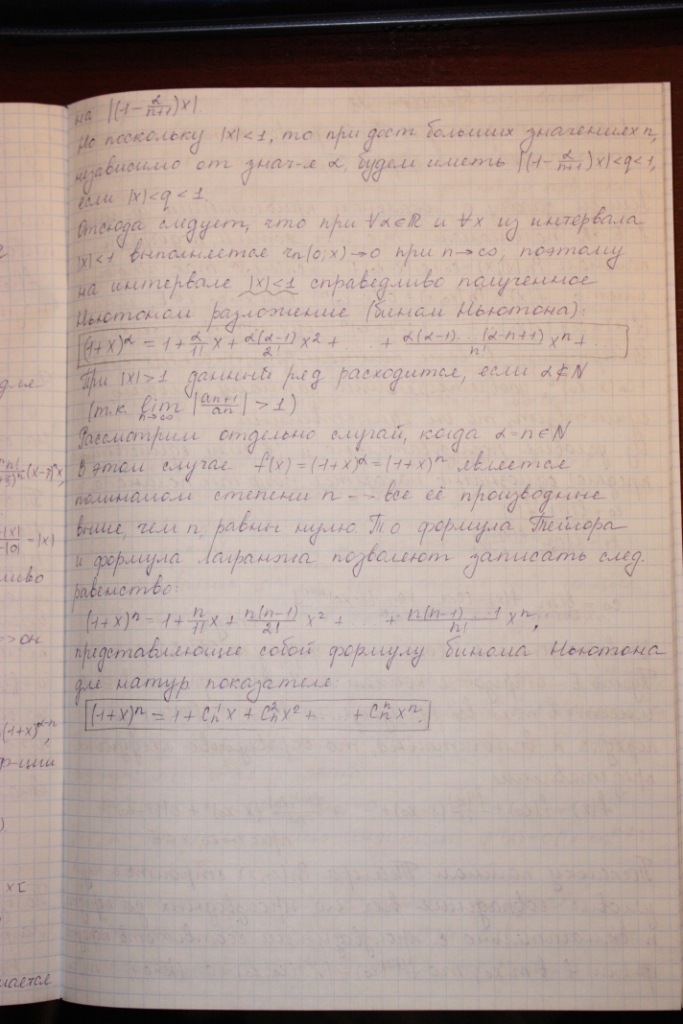 на |(1-α/(n+1))x|.
Но поскольку |x|<1, то при дост больших значениях n,
независимо от знач-я α, будем иметь |(1-α/(n+1))x|<q<1,
если |x|<q<1.
Отсюда следует, что при ∀α∈ℝ и ∀x из интервала
|x|<1 выполняется rn(0;x)→0 при n→∞, поэтому
на интервале |x|<1 справедливо полученное
Ньютоном разложение (бином Ньютона):
(1+x)^α = 1+α/1! x+α(α-1)/2! x²+ . . +α(α-1). (α-n+1)/n! xⁿ+.
При |x|>1 данный ряд расходится, если α∉N
(т.к. lim n→∞ |an+1/an|>1)
Рассмотрим отдельно случай, когда α=n∈N
В этом случае f(x)=(1+x)^α=(1+x)ⁿ является
полиномом степени n -- все её производные
выше, чем n, равны нулю. То формула Тейлора
и формула Лагранжа позволяют записать след.
равенство:
(1+x)ⁿ=1+n/1! x+n(n-1)/2! x²+ . . +n(n-1)...1/n! xⁿ,
представляющее собой формулу бинома Ньютона
для натур. показателя:
(1+x)ⁿ = 1+Cn¹x+Cn²x²+ . . . +Cnⁿxⁿ.
-|x|
ливо
>он
(1+x)^α-n,
ф-ции
x[